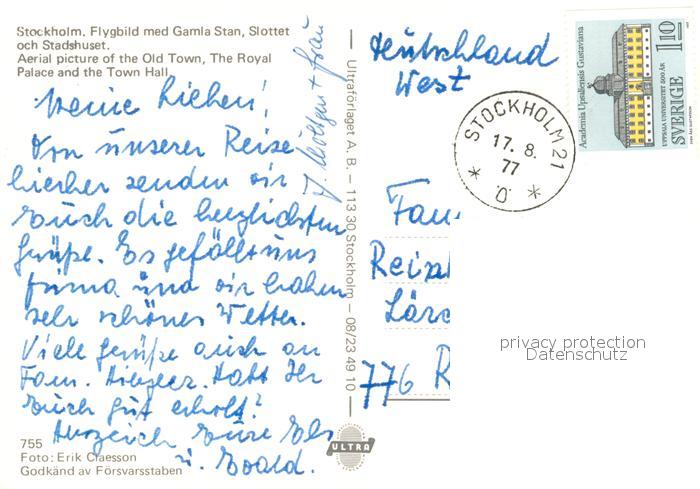 Stockholm. Flygbild med Gamla Stan, Slottet
och Stadshuset.
Aerial picture of the Old Town, The Royal
Palace and the Town Hall
Meine Lieben!
Von unserer Reise
hierher senden wir
Euch die herzlichsten
Grüße. Es gefällt uns
prima und wir haben
sehr schönes Wetter.
Viele Grüße auch an
Fam.
Habt Ihr
Euch gut erholt?
Eure Els
u. Ewald.
755
Foto: Erik Claesson
Godkänd av Försvarsstaben
+ Frau
Ultraförlaget A. B. – 113 30 Stockholm – 08/23 49 10
ULTRA
Deutschland
West
STOCKHOLM 21
17. 8.
77
* Ö *
Academia Upsaliensis Gustaviana
UPPSALA UNIVERSITET 500 ÅR
SVERIGE
1.10
Fam.
776 R
privacy protection
Datenschutz